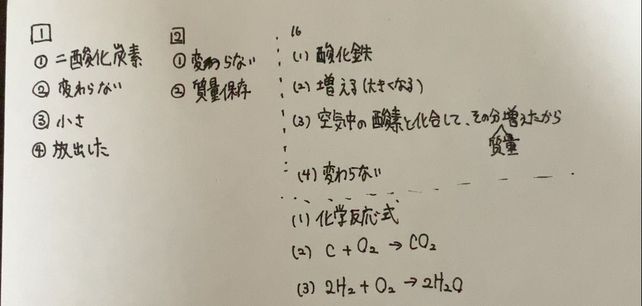 1
① 二酸化炭素
② 変わらない
③ 小さ
④ 放出した
2
① 変わらない
② 質量保存
16
(1) 酸化鉄
(2) 増える(大きくなる)
(3) 空気中の酸素と化合して、その分増えたから
質量
(4) 変わらない
(1) 化学反応式
(2) C + O₂ → CO₂
(3) 2H₂ + O₂ → 2H₂O